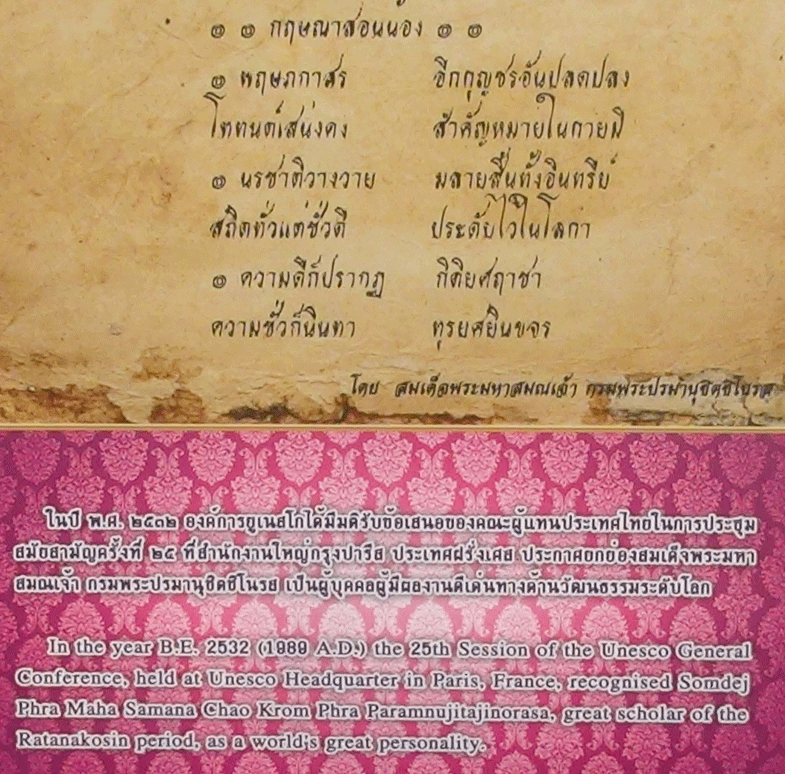 ๏ ๏ กฤษณาสอนน้อง ๏ ๏
๏ พฤษภกาสร อีกกุญชรอันปลดปลง
โททนต์เสน่งคง สำคัญหมายในกายมี
๏ นรชาติวางวาย มลายสิ้นทั้งอินทรีย์
สถิตทั่วแต่ชั่วดี ประดับไว้ในโลกา
๏ ความดีก็ปรากฏ กิติยศฤาชา
ความชั่วก็นินทา ทุรยศยินขจร
โดย สมเด็จพระมหาสมณเจ้า กรมพระปรมานุชิตชิโนรส
ในปี พ.ศ. ๒๕๓๒ องค์การยูเนสโกได้มีมติรับข้อเสนอของคณะผู้แทนประเทศไทยในการประชุม
สมัยสามัญครั้งที่ ๒๕ ที่สำนักงานใหญ่กรุงปารีส ประเทศฝรั่งเศส ประกาศยกย่องสมเด็จพระมหา
สมณเจ้า กรมพระปรมานุชิตชิโนรส เป็นผู้บุคคลผู้มีผลงานดีเด่นทางด้านวัฒนธรรมระดับโลก
In the year B.E. 2532 (1989 A.D.) the 25th Session of the Unesco General
Conference, held at Unesco Headquarter in Paris, France, recognised Somdej
Phra Maha Samana Chao Krom Phra Paramnujitajinorasa, great scholar of the
Ratanakosin period, as a world's great personality.